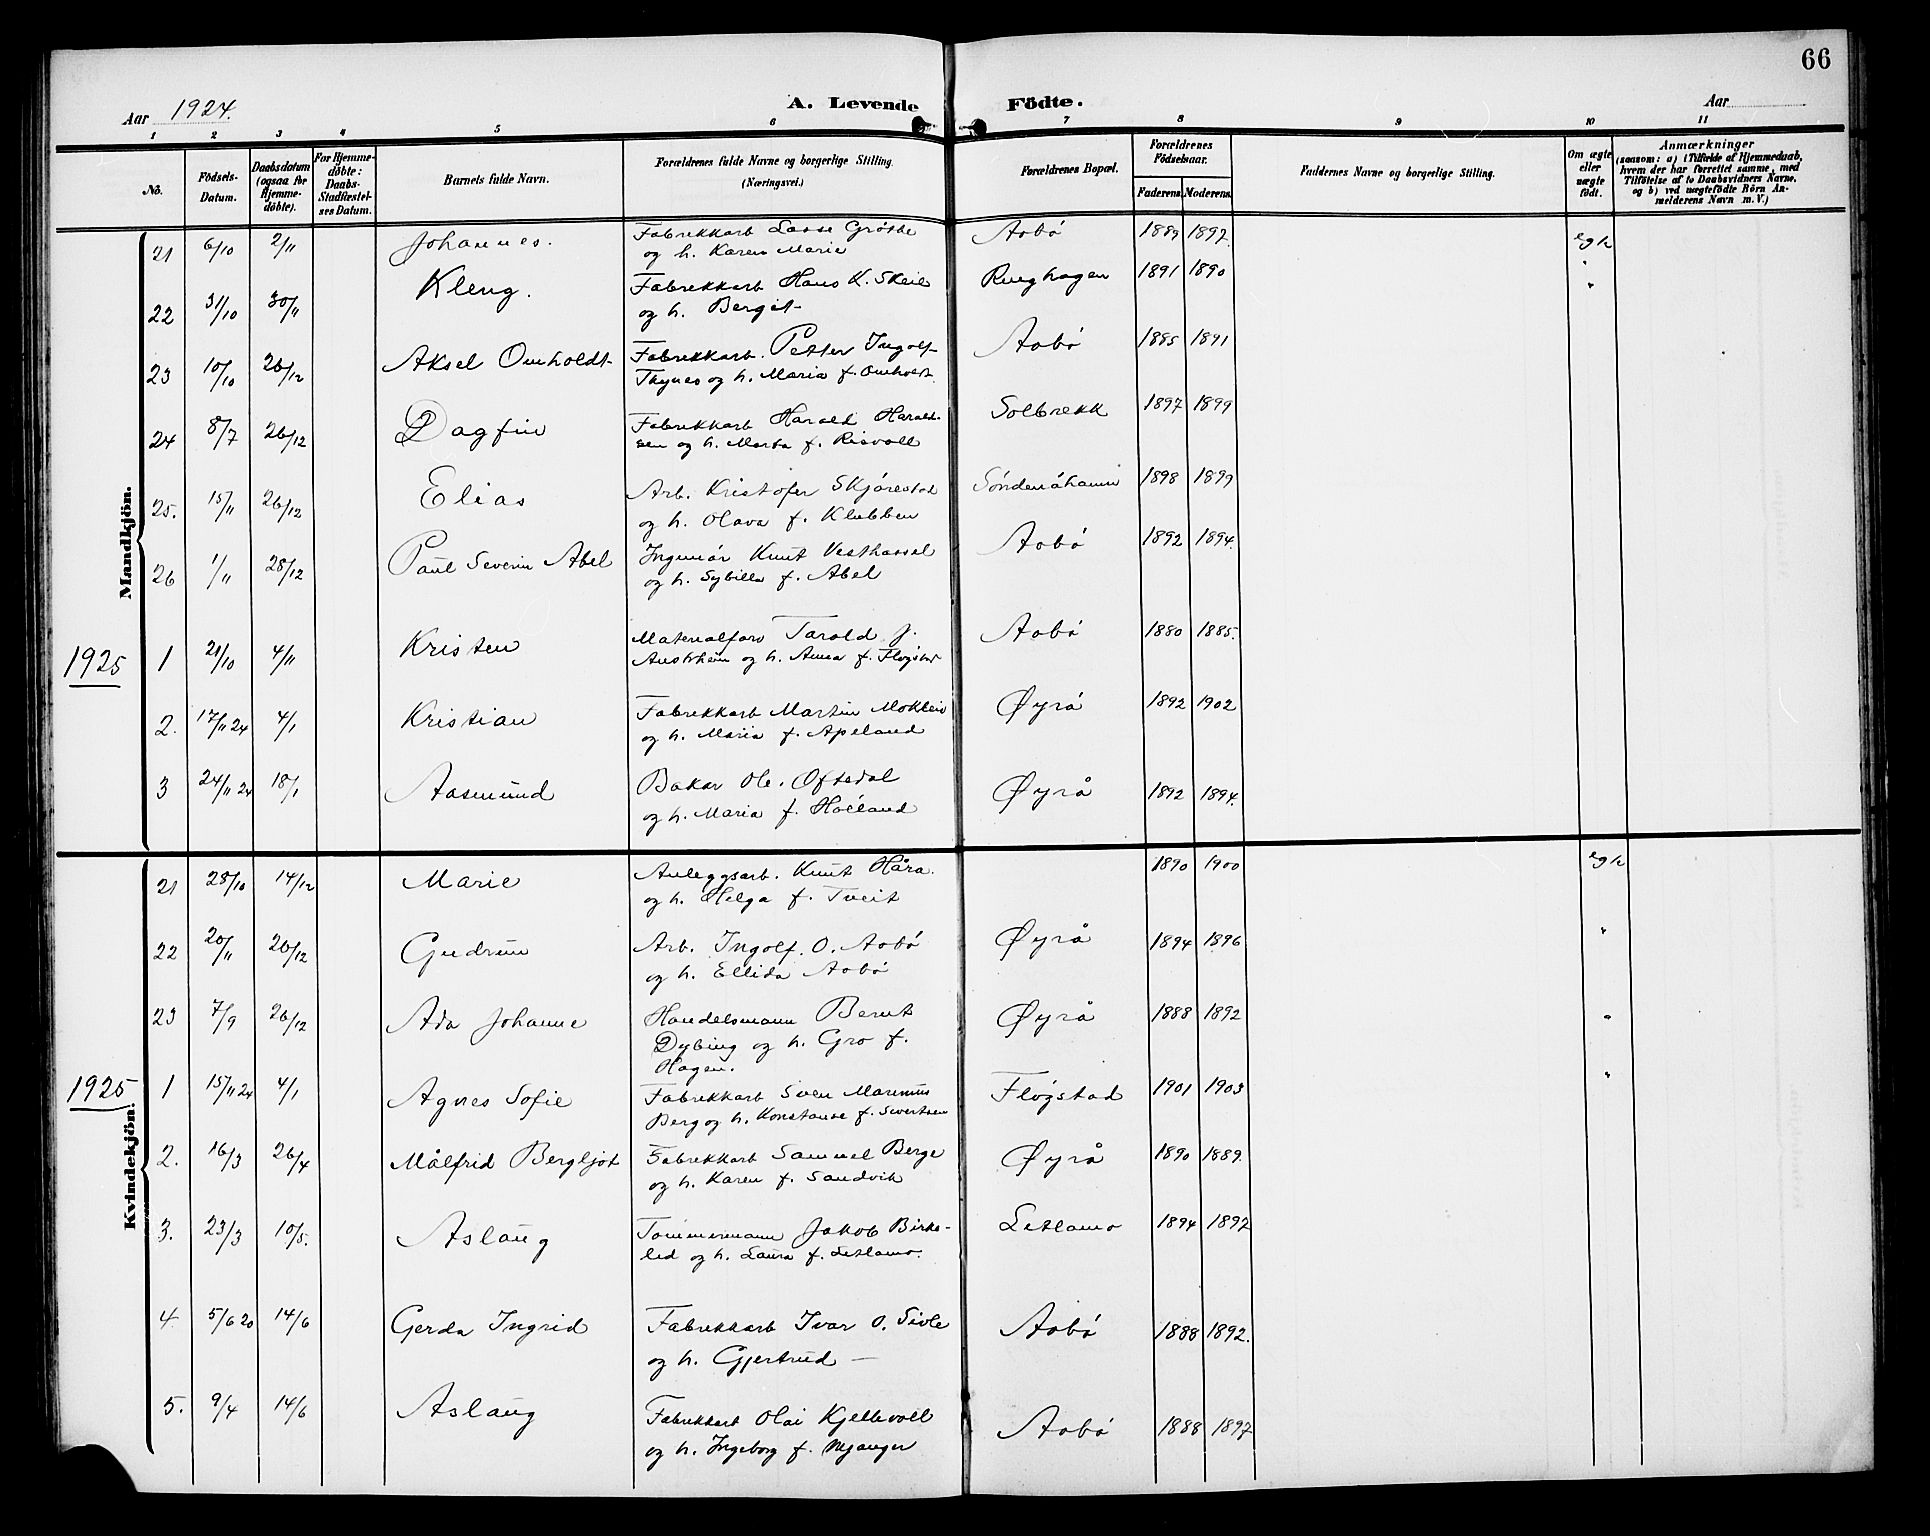 66
Aar 1924. A. Levende Födte. Aar
1 2 3 4 5 6 7 8 9 10 11
No. Födsels-Datum. Daabsdatum (ogsaa for Hjemme-döbte). For Hjemme-döbte: Daabs-Stadfæstel-ses Datum. Barnets fulde Navn. Forældrenes fulde Navne og borgerlige Stilling. (Næringsvei.) Forældrenes Bopæl. Forældrenes Födselsaar. Faderens. Moderens. Faddernes Navne og borgerlige Stilling. Om ægte eller uægte födt. Anmærkninger (saasom: a) i Tilfælde af Hjemmedaab, hvem der har forrettet samme, med Tilföielse af to Daabsvidners Navne, og b) ved uægtefödte Börn An-melderens Navn m.V.)
Mandkjön.
21 6/10 2/11 Johannes. Fabrekkarb Lasse Grøtte Aobø 1889 1897. egte
og h. Karen Marie
22 31/10 30/11 Kleng. Fabrekkarb Hans K. Skeie Ringhagen 1891 1890 "
og h. Bergit "
23 10/10 26/12 Aksel Omholdt Fabrekkarb. Petter Ingolf Aobø 1885 1891
Thynes og h. Maria f. Omholdt.
24 8/7 26/12 Dagfin Fabrekkarb Harald Harald- Solbrekk 1897 1899
sen og h. Marta f. Risvoll
25. 15/11 26/12 Elias Arb. Kristofer Skjørestad Søndenåhavn 1898 1899
og h. Olava f. Klubben
26 1/11 28/12 Paul Severin Abel Ingeniør Knut Vesthassel Aobø 1892 1894.
og h. Sybilla f. Abel
1925 1 21/10 4/11 Kristen Materialforv Tarald J. Aobø 1880 1885.
Austrheim og h. Anna f. Fløgstad
2. 17/11 24 4/1 Kristian Fabrekkarb Martin Mokleiv Øyrå 1892 1902
og h. Maria f. Apeland
3 24/11 24 18/1 Aasmund Bakar Ole Oftedal Øyrå 1892 1894.
og h. Maria f. Høiland
Kvindekjön.
21 28/10 14/12 Marie Anleggsarb. Knut Håra. 1890 1900 egte
og h. Helga f. Tveit
22 20/11 26/12 Gudrun Arb. Ingolf O. Aobø Øyrå 1894 1896 "
og h. Ellida Aobø
23 7/9 26/12 Ada Johanne Handelsmann Bernt Øyrå 1888 1892 "
Dybing og h. Gro f.
Hagen.
1925 1 15/11 24 4/1 Agnes Sofie Fabrekkarb Sven Marinus Fløgstad 1901 1903 "
Berg og h. Konstanse f. Sivertsen
2. 16/3 26/4 Målfrid Bergljot Fabrekkarb Samuel Berge Øyrå 1890 1889.
og h. Karen f. Sandvik
3. 23/3 10/5. Aslaug Tømmermann Jakob Birke- Letlamo 1894 1897
lid og h. Laura f. Letlamo.
4. 5/6 20 14/6 Gerda Ingrid Fabrekkarb Ivar O. Sivle Aobø 1888 1892.
og h. Gjertrud —
5. 9/4 14/6 Aslaug Fabrekkarb Olai Kjellevoll Aobø 1888 1897
og h. Ingeborg f. Mjanger